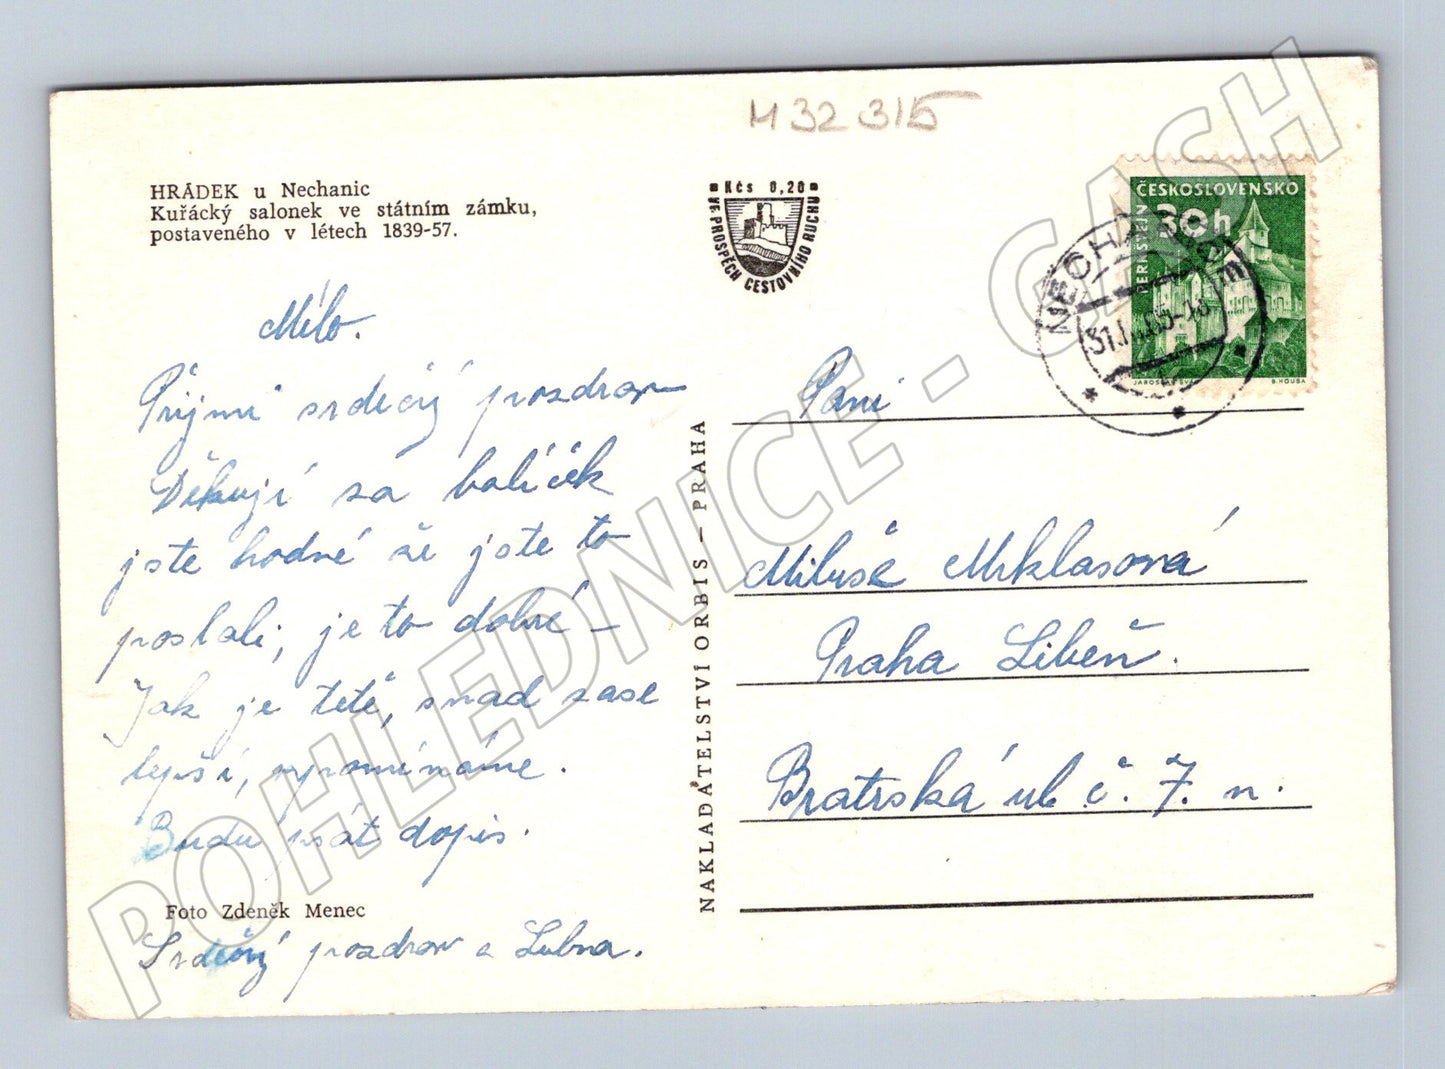 M 32 315
HRÁDEK u Nechanic
Kuřácký salonek ve státním zámku,
postaveného v létech 1839-57.
Kčs 0,20
VE PROSPĚCH CESTOVNÍHO RUCHU
ČESKOSLOVENSKO
30h
PERNŠTEJN
B. HOUBA
Mílo.
Přijmi srdečný pozdrav
Děkuji za balíček
jste hodné že jste to
poslali, je to dobré –
Jak je tetě, snad zase
lepší, vzpomínáme.
Budu psát dopis.
Foto Zdeněk Menec
Srdečný pozdrav a Lubna.
NAKLADATELSTVÍ ORBIS – PRAHA
Paní
Miluše Mrklasová
Praha Libeň.
Bratrská ul. č. 7. n.
POHLEDNICE - CASH